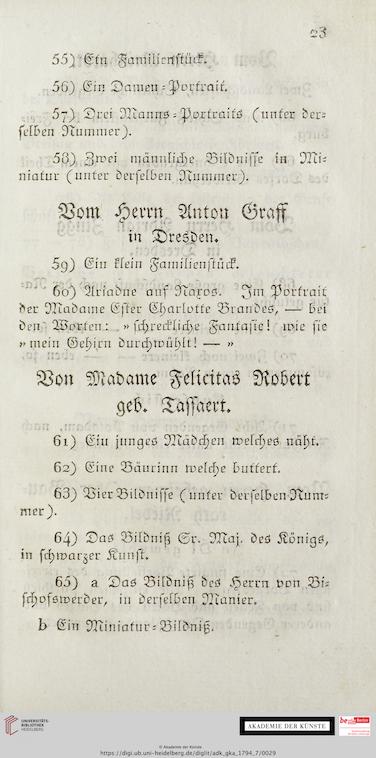 23
55) Ein Familienstück.
56) Ein Damen-Portrait.
57) Drei Manns-Portraits (unter der-
selben Nummer).
58) Zwei männliche Bildnisse in Mi-
niatur (unter derselben Nummer).
Vom Herrn Anton Graff
in Dresden.
59) Ein klein Familienstück.
60) Ariadne auf Naxos. Im Portrait
der Madame Ester Charlotte Brandes, — bei
den Worten: »schreckliche Fantasie! wie sie
»mein Gehirn durchwühlt! — »
Von Madame Felicitas Robert
geb. Tassaert.
61) Ein junges Mädchen welches näht.
62) Eine Bäurinn welche buttert.
63) Vier Bildnisse (unter derselben Num-
mer).
64) Das Bildniß Sr. Maj. des Königs,
in schwarzer Kunst.
65) a Das Bildniß des Herrn von Bi-
schofswerder, in derselben Manier.
b Ein Miniatur-Bildniß.
UNIVERSITÄTS-
BIBLIOTHEK
HEIDELBERG
AKADEMIE DER KÜNSTE
be Berlin
© Akademie der Künste
https://digi.ub.uni-heidelberg.de/diglit/adk_gka_1794_7/0029